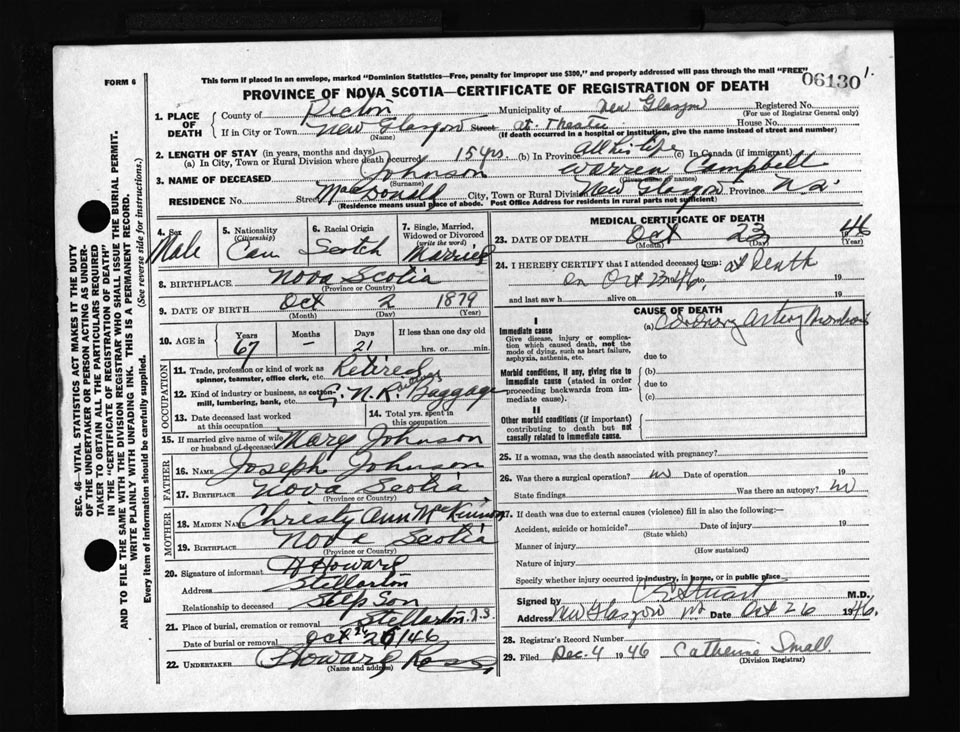 FORM 6
This form if placed in an envelope, marked "Dominion Statistics—Free, penalty for improper use $300," and properly addressed will pass through the mail "FREE"
06130 1.
PROVINCE OF NOVA SCOTIA—CERTIFICATE OF REGISTRATION OF DEATH
1. PLACE OF DEATH County of Pictou Municipality of New Glasgow Registered No.
(For use of Registrar General only)
If in City or Town New Glasgow Street at Theatre House No.
(Name) (If death occurred in a hospital or institution, give the name instead of street and number)
2. LENGTH OF STAY (in years, months and days)
(a) In City, Town or Rural Division where death occurred 15 yrs. (b) In Province All his life (c) In Canada (if immigrant)
3. NAME OF DECEASED Johnson Warren Campbell
(Surname) (Given name or names)
RESIDENCE No. Street MacDonald City, Town or Rural Division New Glasgow Province N.S.
(Residence means usual place of abode. Post Office Address for residents in rural parts not sufficient)
SEC. 46—VITAL STATISTICS ACT MAKES IT THE DUTY
OF THE UNDERTAKER OR PERSON ACTING AS UNDER-
TAKER TO OBTAIN ALL THE PARTICULARS REQUIRED
IN THE "CERTIFICATE OF REGISTRATION OF DEATH"
AND TO FILE THE SAME WITH THE DIVISION REGISTRAR WHO SHALL ISSUE THE BURIAL PERMIT.
WRITE PLAINLY WITH UNFADING INK. THIS IS A PERMANENT RECORD.
Every item of information should be carefully supplied. (See reverse side for instructions.)
4. Sex Male
5. Nationality (Citizenship) Can
6. Racial Origin Scotch
7. Single, Married, Widowed or Divorced (write the word) Married
8. BIRTHPLACE Nova Scotia
(Province or Country)
9. DATE OF BIRTH Oct 2 1879
(Month) (Day) (Year)
10. AGE in Years Months Days If less than one day old
67 — 21 hrs. or min.
OCCUPATION
11. Trade, profession or kind of work as spinner, teamster, office clerk, etc. Retired
12. Kind of industry or business, as cotton-mill, lumbering, bank, etc. C.N.R. Baggage
13. Date deceased last worked at this occupation
14. Total yrs. spent in this occupation
15. If married give name of wife or husband of deceased Mary Johnson
FATHER
16. NAME Joseph Johnson
17. BIRTHPLACE Nova Scotia
(Province or Country)
MOTHER
18. MAIDEN NAME Christy Ann McKinnon
19. BIRTHPLACE Nova Scotia
(Province or Country)
20. Signature of informant H Howard
Address Stellarton
Relationship to deceased Step Son
21. Place of burial, cremation or removal Stellarton. N.S.
Date of burial or removal Oct 26 / 46
22. UNDERTAKER Howard Ross
(Name and address)
MEDICAL CERTIFICATE OF DEATH
23. DATE OF DEATH Oct 23 46
(Month) (Day) (Year)
24. I HEREBY CERTIFY that I attended deceased from: at Death
on Oct 23 46 19
and last saw h alive on 19
CAUSE OF DEATH
I
Immediate cause
Give disease, injury or complication which caused death, not the mode of dying, such as heart failure, asphyxia, asthenia, etc.
(a) Coronary Artery Thrombosis
due to
Morbid conditions, if any, giving rise to immediate cause (stated in order proceeding backwards from immediate cause).
(b)
due to
(c)
II
Other morbid conditions (if important) contributing to death but not causally related to immediate cause.
25. If a woman, was the death associated with pregnancy?
26. Was there a surgical operation? no Date of operation 19
State findings Was there an autopsy? no
27. If death was due to external causes (violence) fill in also the following:—
Accident, suicide or homicide? Date of injury 19
(State which)
Manner of injury
(How sustained)
Nature of injury
Specify whether injury occurred in industry, in home, or in public place
Signed by Stuart M.D.
Address New Glasgow NS Date Oct 26 1946.
28. Registrar's Record Number
29. Filed Dec. 4 1946 Catherine Small
(Division Registrar)